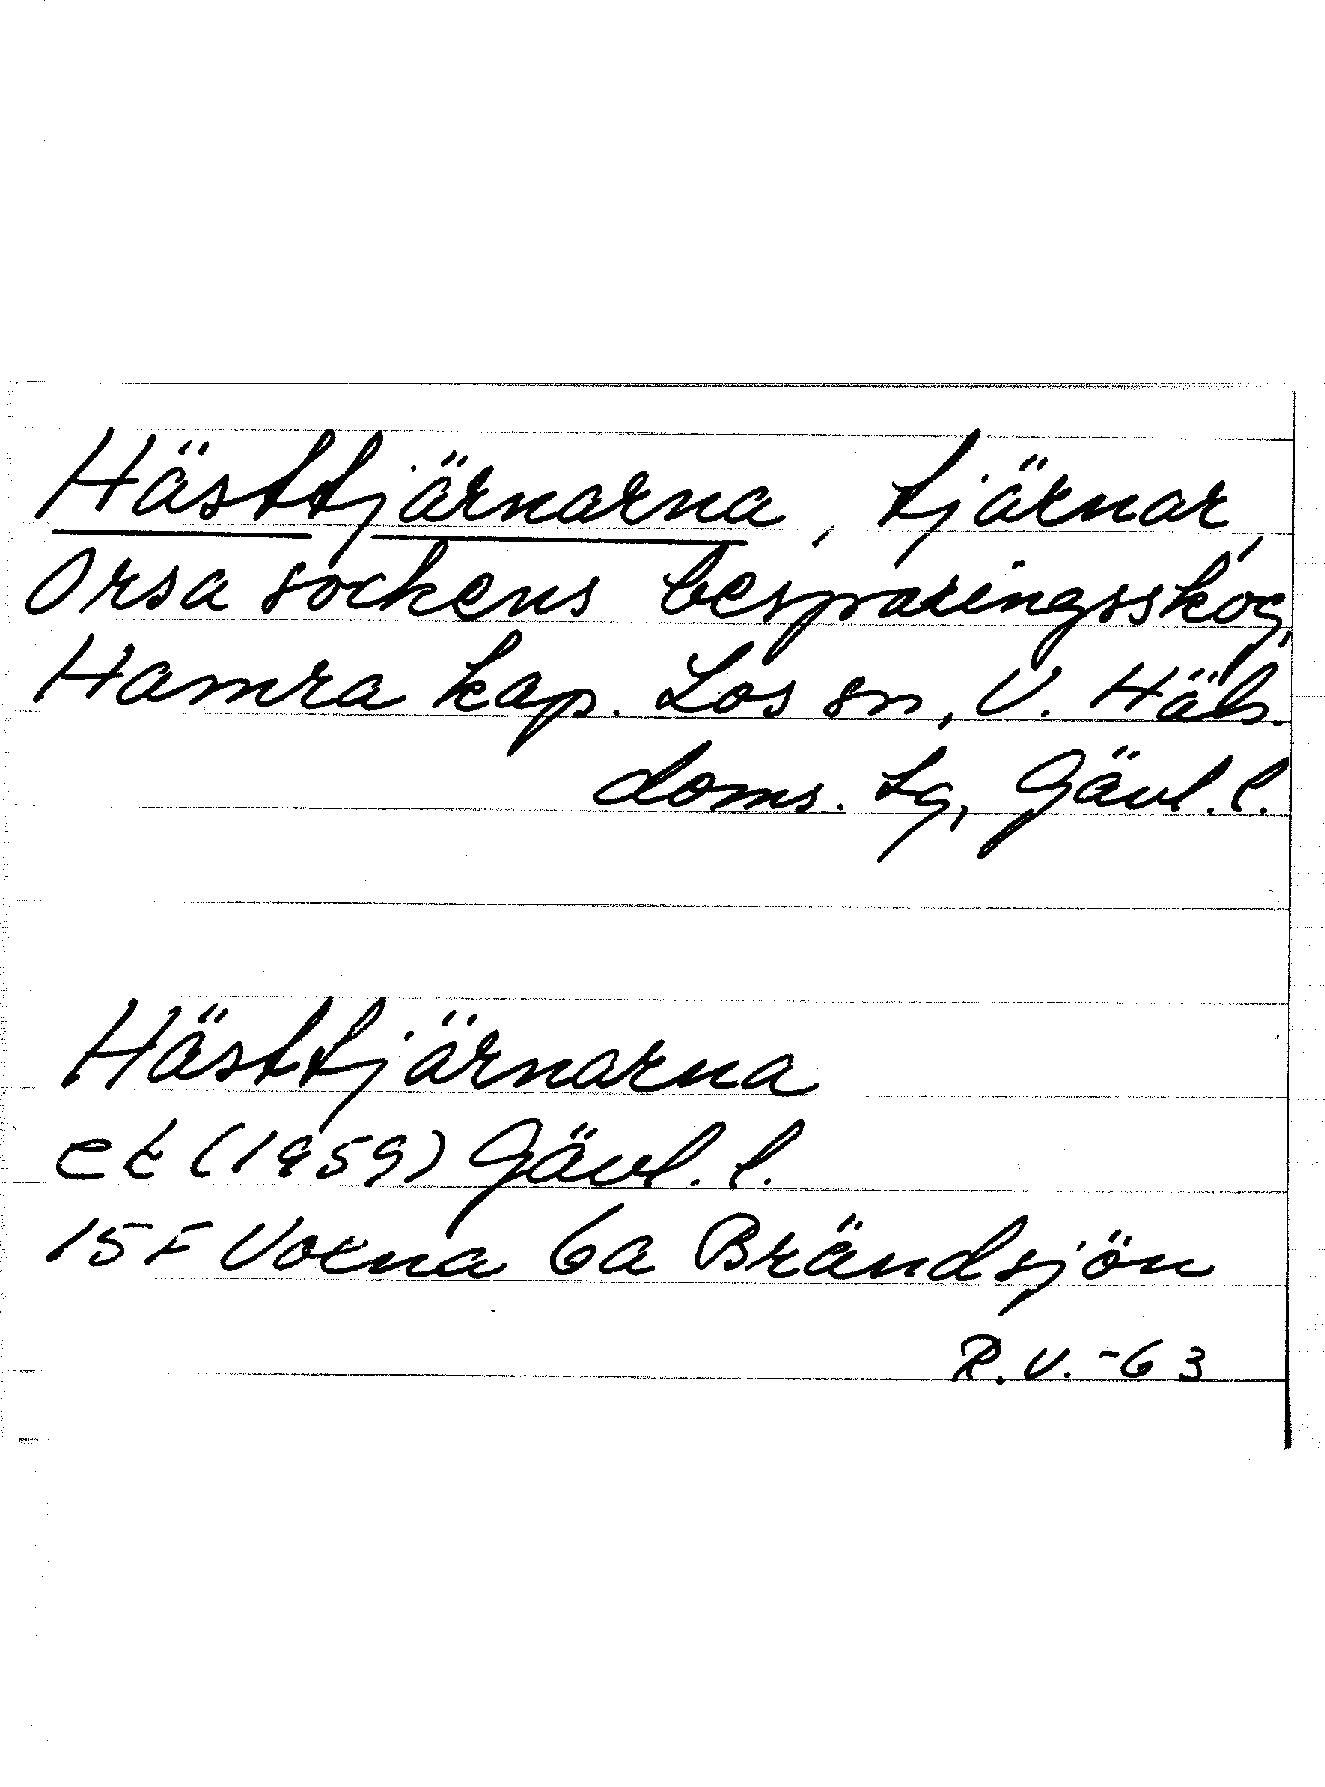 Hästtjärnarna, tjärnar,
Orsa sockens besparingsskog,
Hamra kap. Los sn, V. Häls.
doms. lg, Gävl. l.
Hästtjärnarna
ek (1959) Gävl. l.
15 F Voxna 6a Brändsjön
R. V. -63